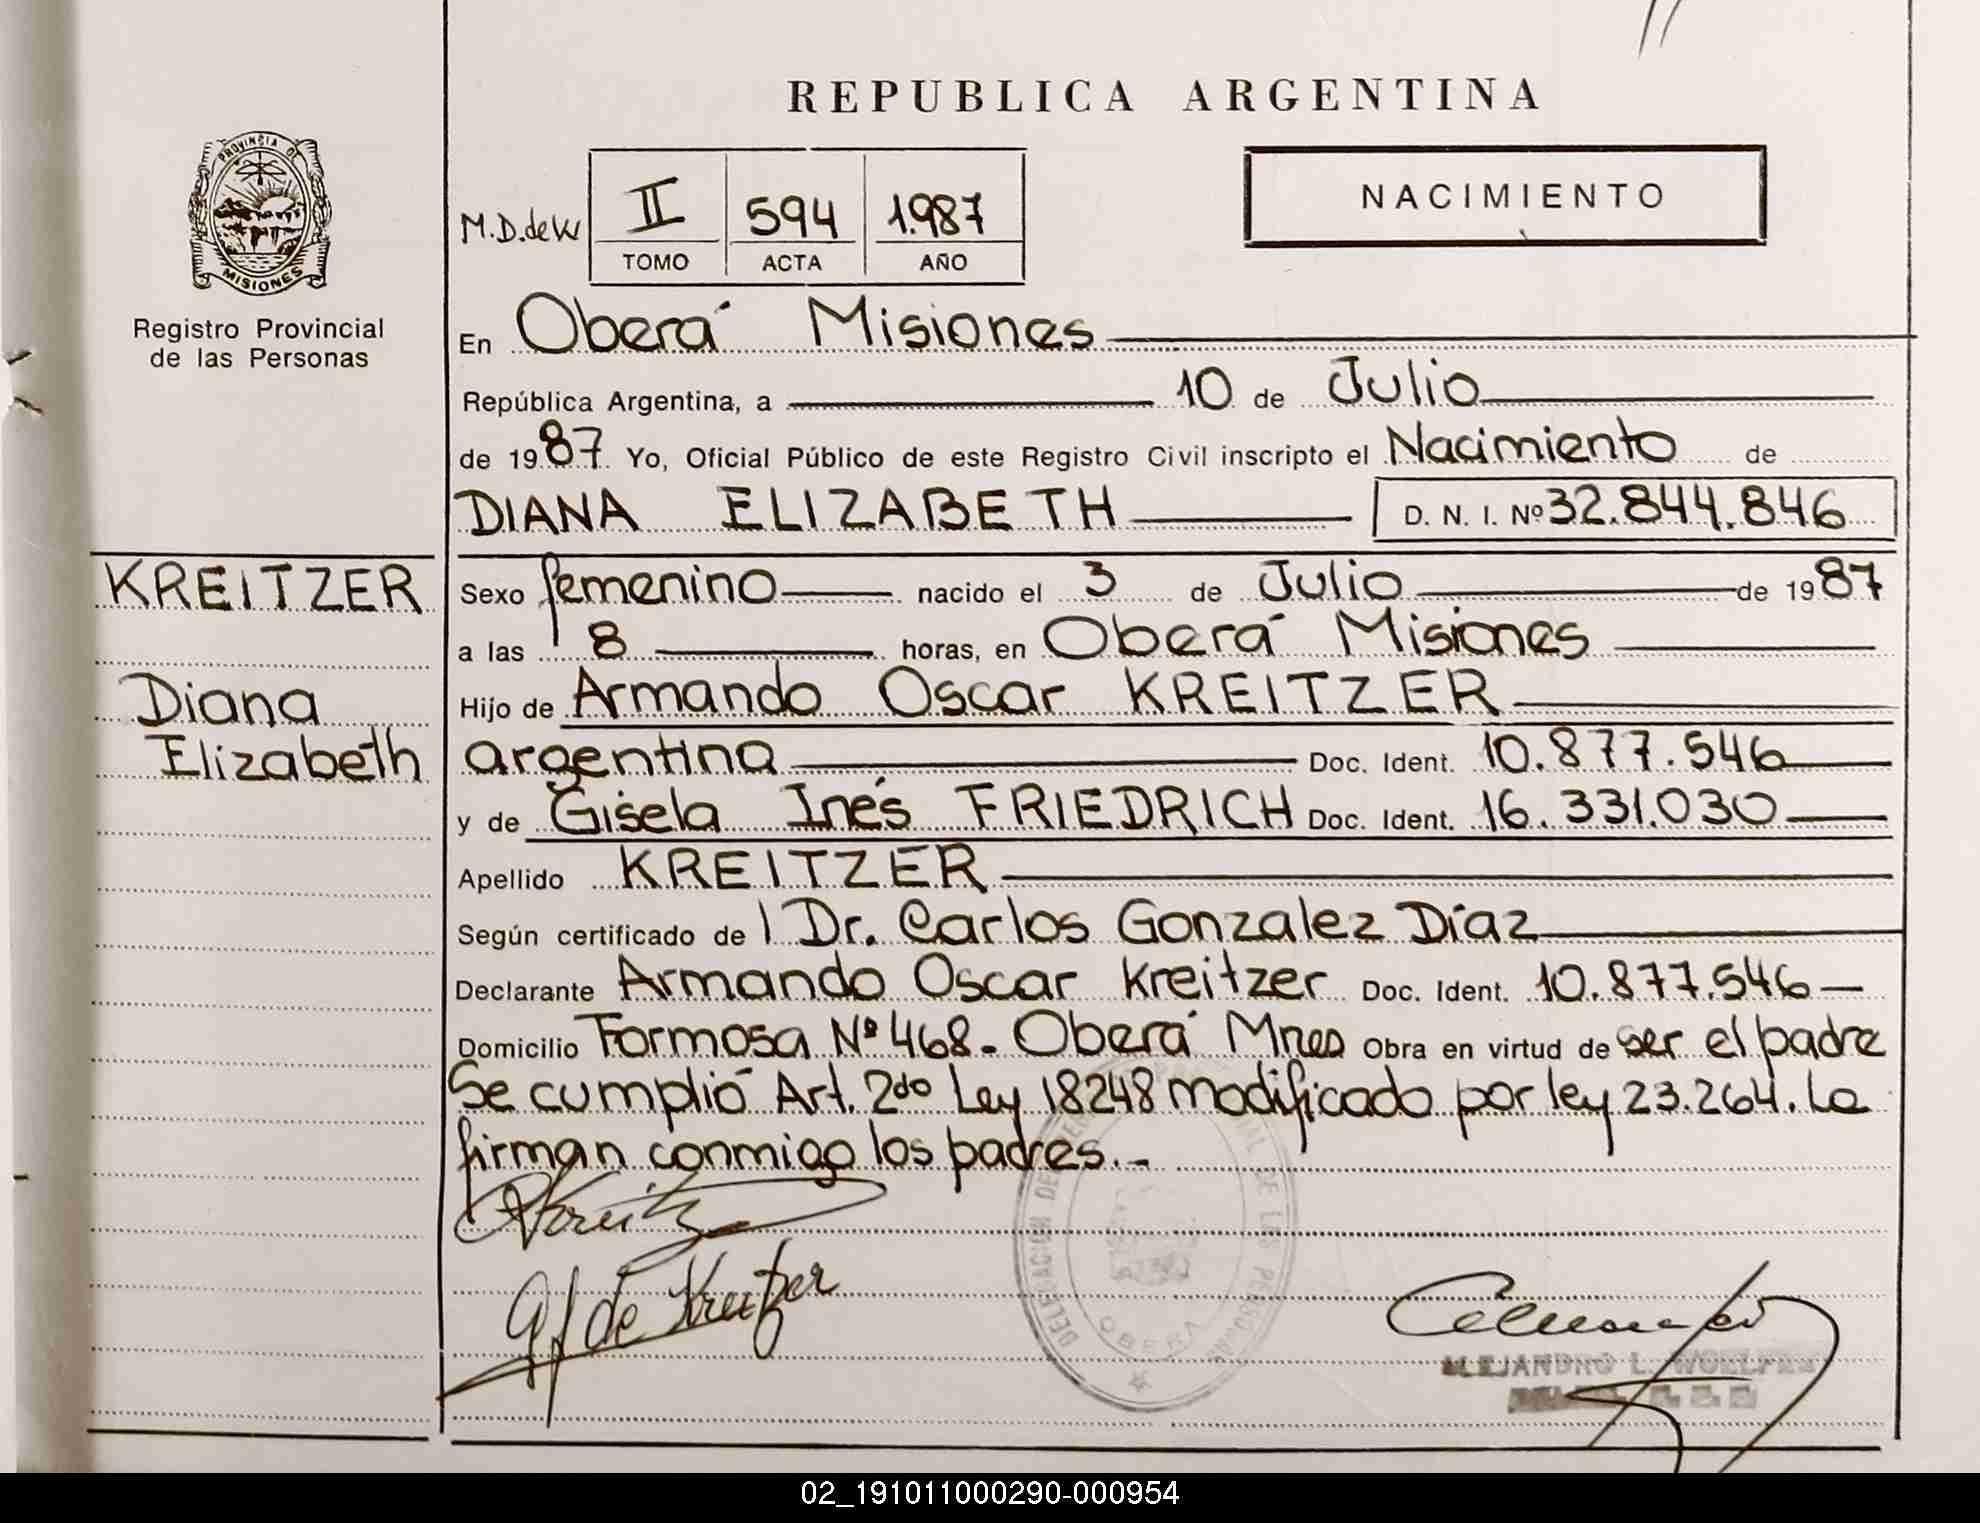 REPUBLICA ARGENTINA
PROVINCIA DE
MISIONES
Registro Provincial
de las Personas
NACIMIENTO
M.D.de W
II 594 1.987
TOMO ACTA AÑO
En Oberá Misiones
República Argentina, a 10 de Julio
de 1987 Yo, Oficial Público de este Registro Civil inscripto el Nacimiento de
DIANA ELIZABETH D. N. I. Nº 32.844.846
KREITZER
Diana
Elizabeth
Sexo femenino nacido el 3 de Julio de 1987
a las 8 horas, en Oberá Misiones
Hijo de Armando Oscar KREITZER
argentina Doc. Ident. 10.877.546
y de Gisela Inés FRIEDRICH Doc. Ident. 16.331.030
Apellido KREITZER
Según certificado de l Dr. Carlos Gonzalez Díaz
Declarante Armando Oscar Kreitzer Doc. Ident. 10.877.546
Domicilio Formosa Nº 468. Oberá Mnes Obra en virtud de ser el padre
Se cumplió Art. 2do Ley 18248 modificado por ley 23.264. La
firman conmigo los padres.-
Kreitz
G f de Kreitzer
DELEGACION DE LAS PERSONAS
OBERA
ALEJANDRO L.
02_191011000290-000954